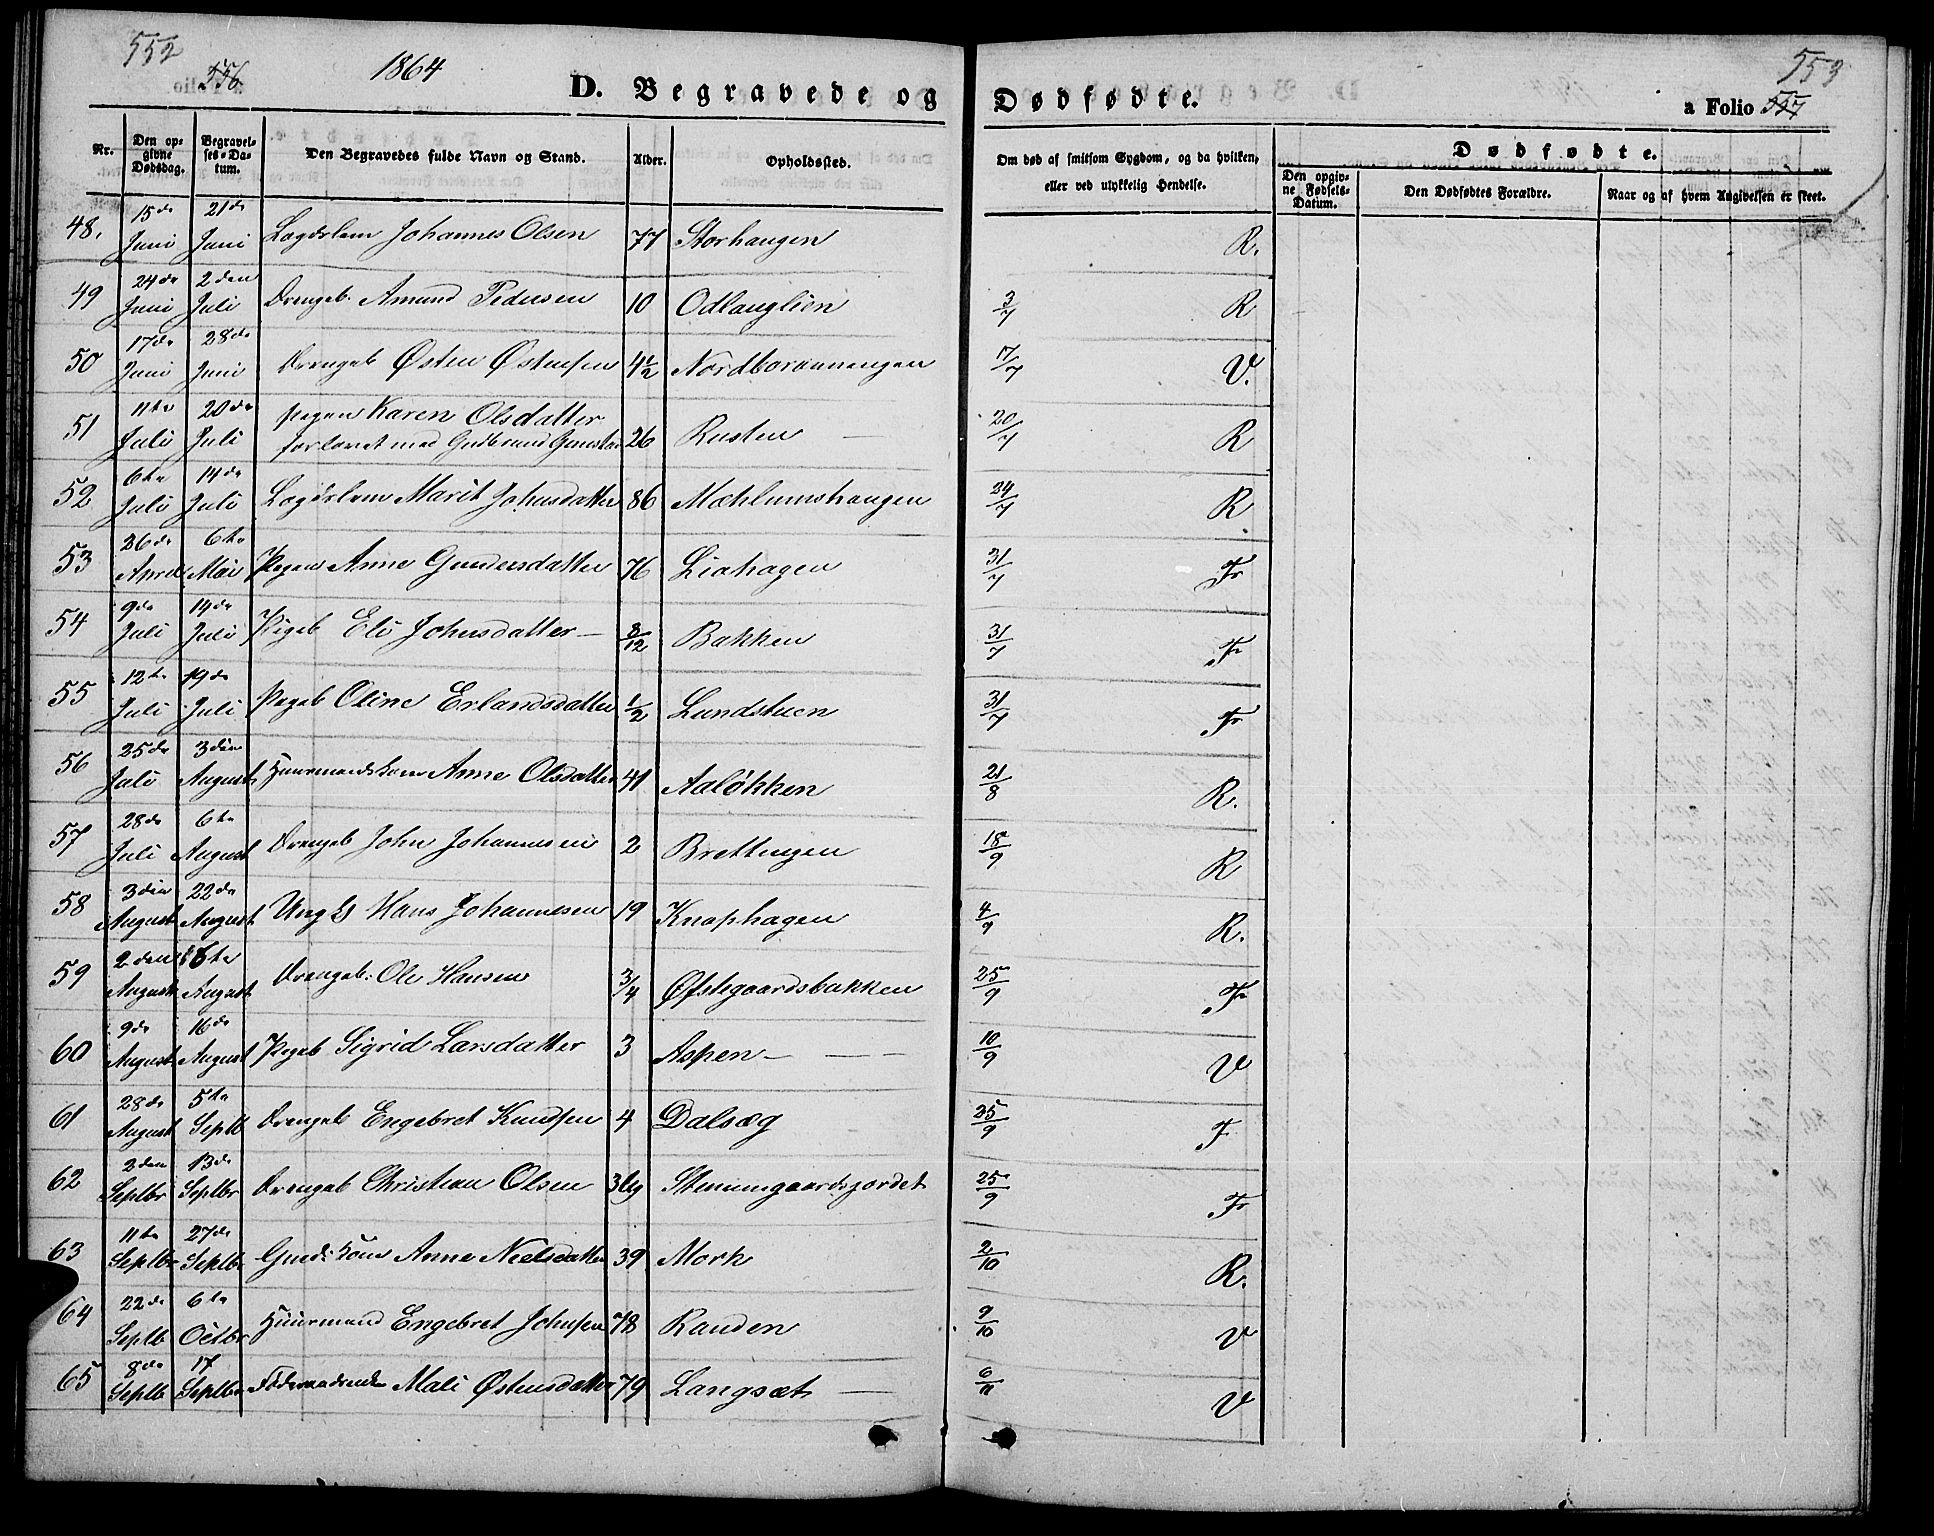 552
556
1864
D. Begravede og
Nr.
Den opgivne Dødsdag.
Begravelses-Datum.
Den Begravedes fulde Navn og Stand.
Alder.
Opholdssted.
48. 15de Juni 21de Juni Lægdslem Johannes Olsen 77 Storhaugen
49 24de Juni 2den Juli Drengeb. Amund Pedersen 10 Odlauglien
50 17de Juni 28de Juni Drengeb Østen Østensen 4½ Nordborønningen
51 11te Juli 20de Juli Pigen Karen Olsdatter
forlovet med Gudbrand 26 Rusten —
52 6te Juli 14de Juli Lægdslem Marit Johnsdatter 86 Mæhlumshaugen
53 26de April 6te Mai Pigen Anne Gundersdatter 76 Liahagen
54 9de Juli 14de Juli Pigeb Eli Johnsdatter — 8/12 Bakken
55 12te Juli 19de Juli Pigeb Oline Erlandsdatter ½ Lundstuen
56 25de Juli 3die August Huusmandskone Anne Olsdatter 41 Aaløkken
57 28de Juli 6te August Drengeb John Johannesen 2 Brettingen
58 3die August 22de August Ungk Hans Johannesen 19 Knaphagen
59 2den August 16te August Drengeb: Ole Hansen 3/4 Øfstegaardsbakken
60 9de August 16de August Pigeb Sigrid Larsdatter 3 Aspen — —
61 28de August 5te Septb Drengeb Engebret Knudsen 4 Dalsæg
62 2den Septbr 13de Septbr Drengeb Christian Olsen 3 Ug Steinumgaardsjordet
63 11te Septbr 27de Septbr Gmds: Kone Anne Nielsdatter 39 Mork
64 22de Septb 6te Octbr Huusmand Engebret Johnsen 78 Randen
65 8de Septb 17 Septbr Føderaadsenke Mali Østensdatter 79 Langsæt —
553
Dødfødte.
a Folio 557
Om død af smitsom Sygdom, og da hvilken,
eller ved ulykkelig Hendelse.
Dødfødte.
Den opgivne Fødsels-Datum.
Den Dødfødtes Forældre.
Naar og af hvem Angivelsen er skeet.
R.
3/7 R
17/7 V.
20/7 R
24/7 R
31/7 Fr
31/7 Fr
31/7 Fr
21/8 R.
18/9 R
4/9 R.
25/9 Fr
10/9 V
25/9 F
25/9 Fr
2/10 R.
9/10 V
6/11 V